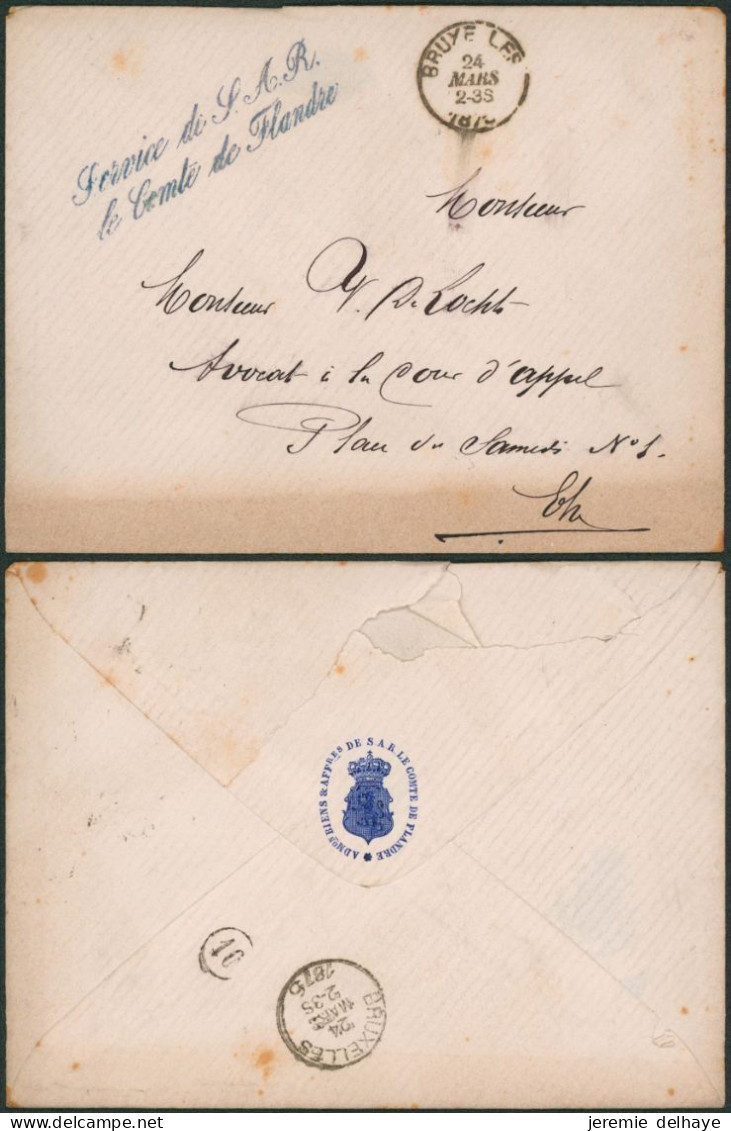 Service de S. A. R.
le Comte de Flandre
BRUXELLES
24
MARS
2-3S
1875
Monsieur
Monsieur V. De Locht
Avocat à la Cour d'appel
Place du Samedi N° 1.
ADMON BIENS & AFFRES DE S.A.R. LE COMTE DE FLANDRE
10
BRUXELLES
24
MARS
2-3S
1875
jeremie delhaye